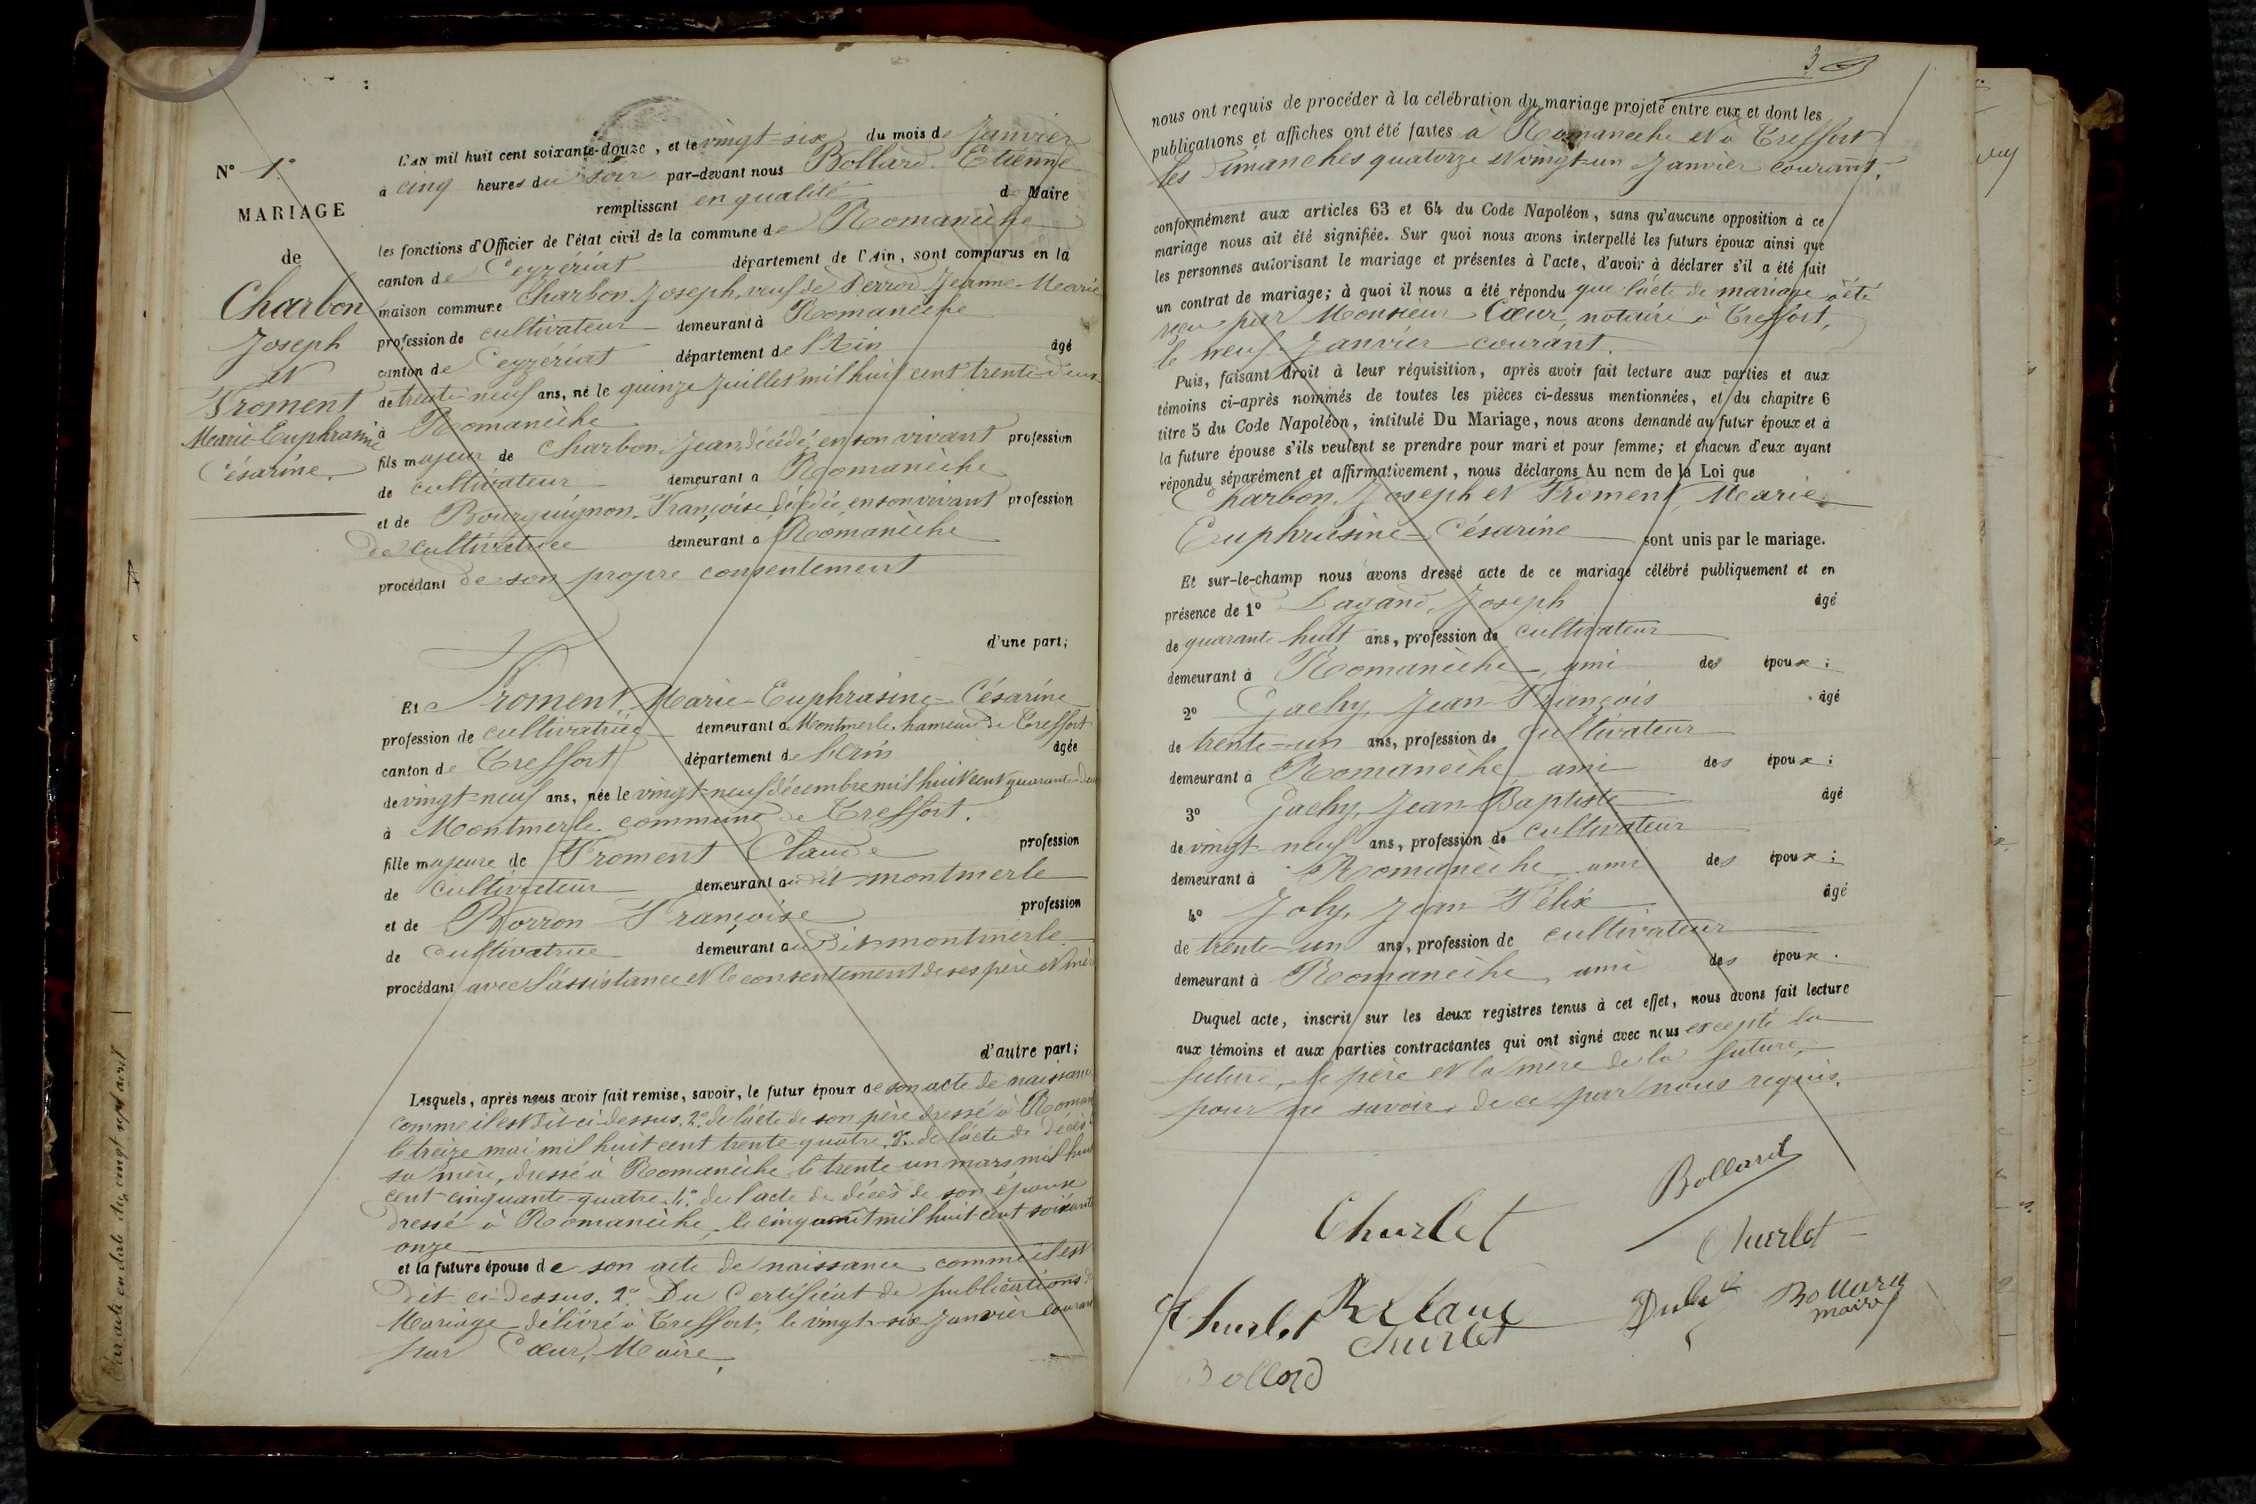 N° 1°
MARIAGE
de
Charbon
Joseph
et
Froment
Marie-Euphrasine
Césarine.
L'AN mil huit cent soixante-douze, et le vingt-six du mois de Janvier
à cinq heures du soir par-devant nous Bollard Etienne
remplissant en qualité de Maire
les fonctions d'Officier de l'état civil de la commune de Romanèche
canton de Ceyzériat département de l'Ain, sont comparus en la
maison commune Charbon Joseph, veuf de Perrod Jeanne-Marie
profession de cultivateur demeurant à Romanèche
canton de Ceyzériat département de l'Ain âgé
de trente-neuf ans, né le quinze Juillet mil huit cent trente-deux
à Romanèche
fils majeur de Charbon, Jean, décédé, en son vivant profession
de cultivateur demeurant à Romanèche
et de Bourguignon, Françoise décédée, en son vivant profession
de cultivatrice demeurant à Romanèche
procédant de son propre consentement
d'une part;
Et Froment, Marie-Euphrasine-Césarine
profession de cultivatrice demeurant à Montmerle, hameau de Treffort
canton de Treffort département de l'Ain âgée
de vingt-neuf ans, née le vingt-neuf décembre mil huit cent quarante-deux
à Montmerle commune de Treffort.
fille majeure de Froment Claude profession
de cultivateur demeurant au dit montmerle
et de Borron Françoise profession
de cultivatrice demeurant au dit montmerle
procédant avec l'assistance et le consentement de ses père et mère
d'autre part;
Lesquels, après nous avoir fait remise, savoir, le futur époux de son acte de naissance
comme il est dit ci-dessus. 2° de l'acte de son père dressé à Roman
le treize mai mil huit cent trente-quatre, 3° de l'acte de décès de
sa mère, dressé à Romanèche le trente un mars mil huit
cent cinquante-quatre. 4° de l'acte de décès de son épouse
dressé à Romanèche, le cinq aout mil huit cent soixante
onze
et la future épouse de son acte de naissance comme il est
dit ci-dessus. 2° Du Certificat de publications de
Mariage délivré à Treffort, le vingt-six Janvier courant
par Cœur, Maire.
3
nous ont requis de procéder à la célébration du mariage projeté entre eux et dont les
publications et affiches ont été faites à Romanèche et à Treffort
les Dimanches quatorze et vingt-un Janvier courant.
conformément aux articles 63 et 64 du Code Napoléon, sans qu'aucune opposition à ce
mariage nous ait été signifiée. Sur quoi nous avons interpellé les futurs époux ainsi que
les personnes autorisant le mariage et présentes à l'acte, d'avoir à déclarer s'il a été fait
un contrat de mariage; à quoi il nous a été répondu que l'acte de mariage a été
reçu par Monsieur Cœur, notaire à Treffort,
le neuf Janvier courant.
Puis, faisant droit à leur réquisition, après avoir fait lecture aux parties et aux
témoins ci-après nommés de toutes les pièces ci-dessus mentionnées, et du chapitre 6
titre 5 du Code Napoléon, intitulé Du Mariage, nous avons demandé au futur époux et à
la future épouse s'ils veulent se prendre pour mari et pour femme; et chacun d'eux ayant
répondu séparément et affirmativement, nous déclarons Au nom de la Loi que
Charbon, Joseph et Froment, Marie
Euphrasine-Césarine sont unis par le mariage.
Et sur-le-champ nous avons dressé acte de ce mariage célébré publiquement et en
présence de 1° Dagand, Joseph âgé
de quarante huit ans, profession de cultivateur
demeurant à Romanèche, ami des époux;
2° Gachy, Jean-François âgé
de trente-un ans, profession de cultivateur
demeurant à Romanèche ami des époux;
3° Gachy, Jean-Baptiste âgé
de vingt-neuf ans, profession de cultivateur
demeurant à Romanèche ami des époux;
4° Joly, Jean Félix âgé
de trente-un ans, profession de cultivateur
demeurant à Romanèche, ami des époux.
Duquel acte, inscrit sur les deux registres tenus à cet effet, nous avons fait lecture
aux témoins et aux parties contractantes qui ont signé avec nous excepté la
future, le père et la mère de la future,
pour ne savoir de ce par nous requis.
Bollard
Churlet
Churlet
Churlet
Bollard
maire
Churlet
Bollard